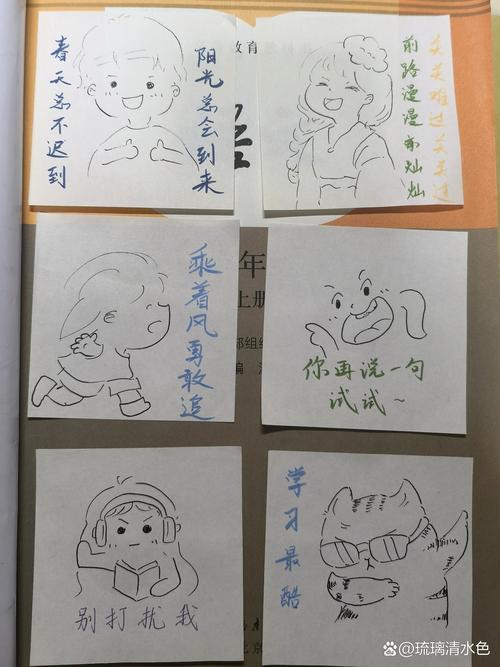 春天总不迟到
阳光总会到来
前路漫漫亦灿灿
关关难过关关过
乘着风勇敢追
你再说一句
试试~
别打扰我
学习最酷
教育
年
上册
部组
编
京
@琉璃清水色